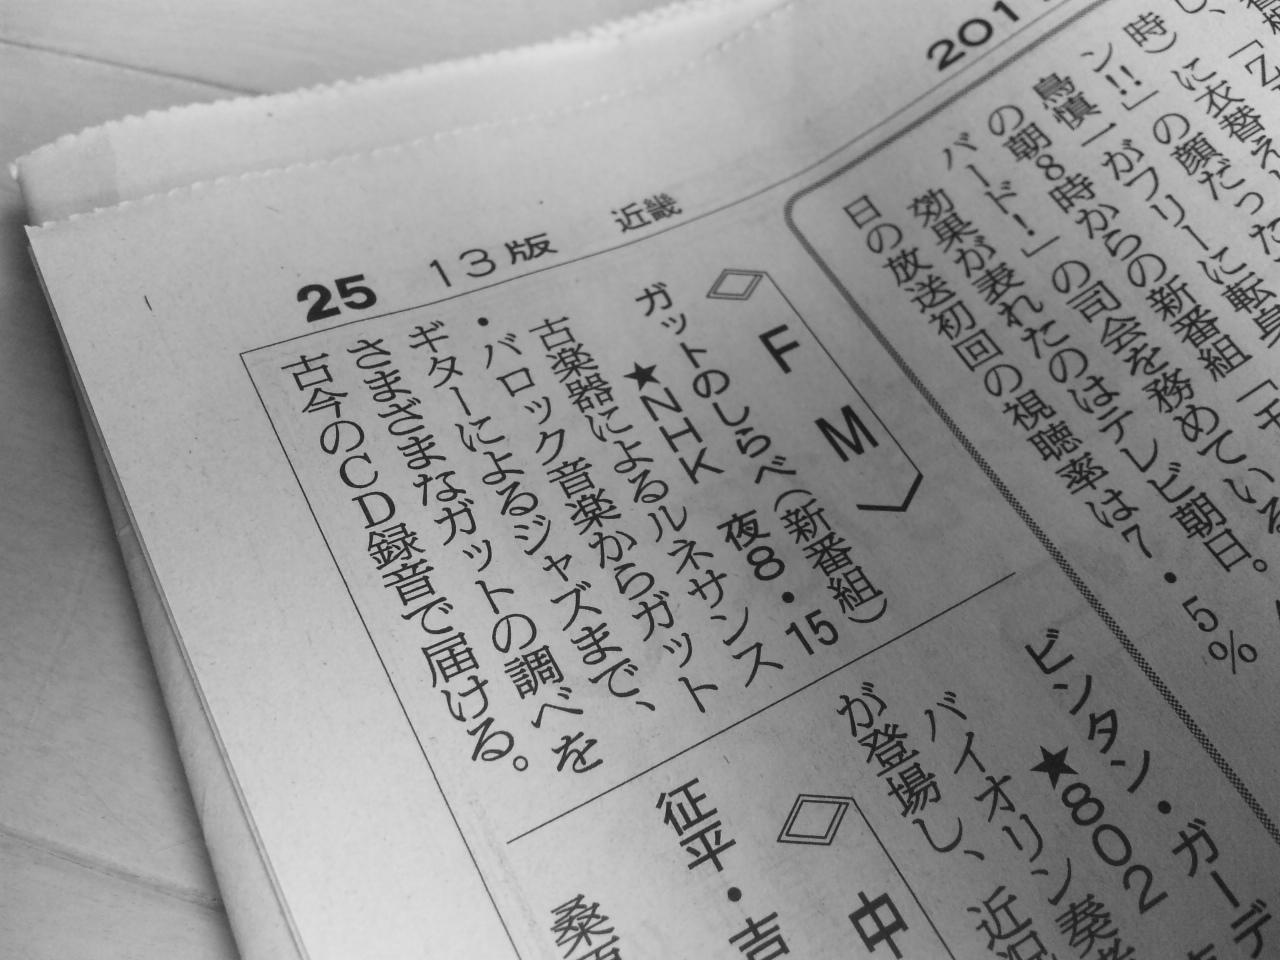 25 13版 近畿
201
時)
ン!!」の顔だった
に衣替え
鳥慎一がフリーに転身
の朝8時からの新番組「モ
バード!」の司会を務めている。
効果が表れたのはテレビ朝日。
日の放送初回の視聴率は7・5%
FM
ガットのしらべ(新番組)
★NHK 夜8・15
古楽器によるルネサンス
・バロック音楽からガット
ギターによるジャズまで、
さまざまなガットの調べを
古今のCD録音で届ける。
ビンタン・ガーデ
★802
バイオリン奏者
が登場し、近況
中
征平・吉
桑原